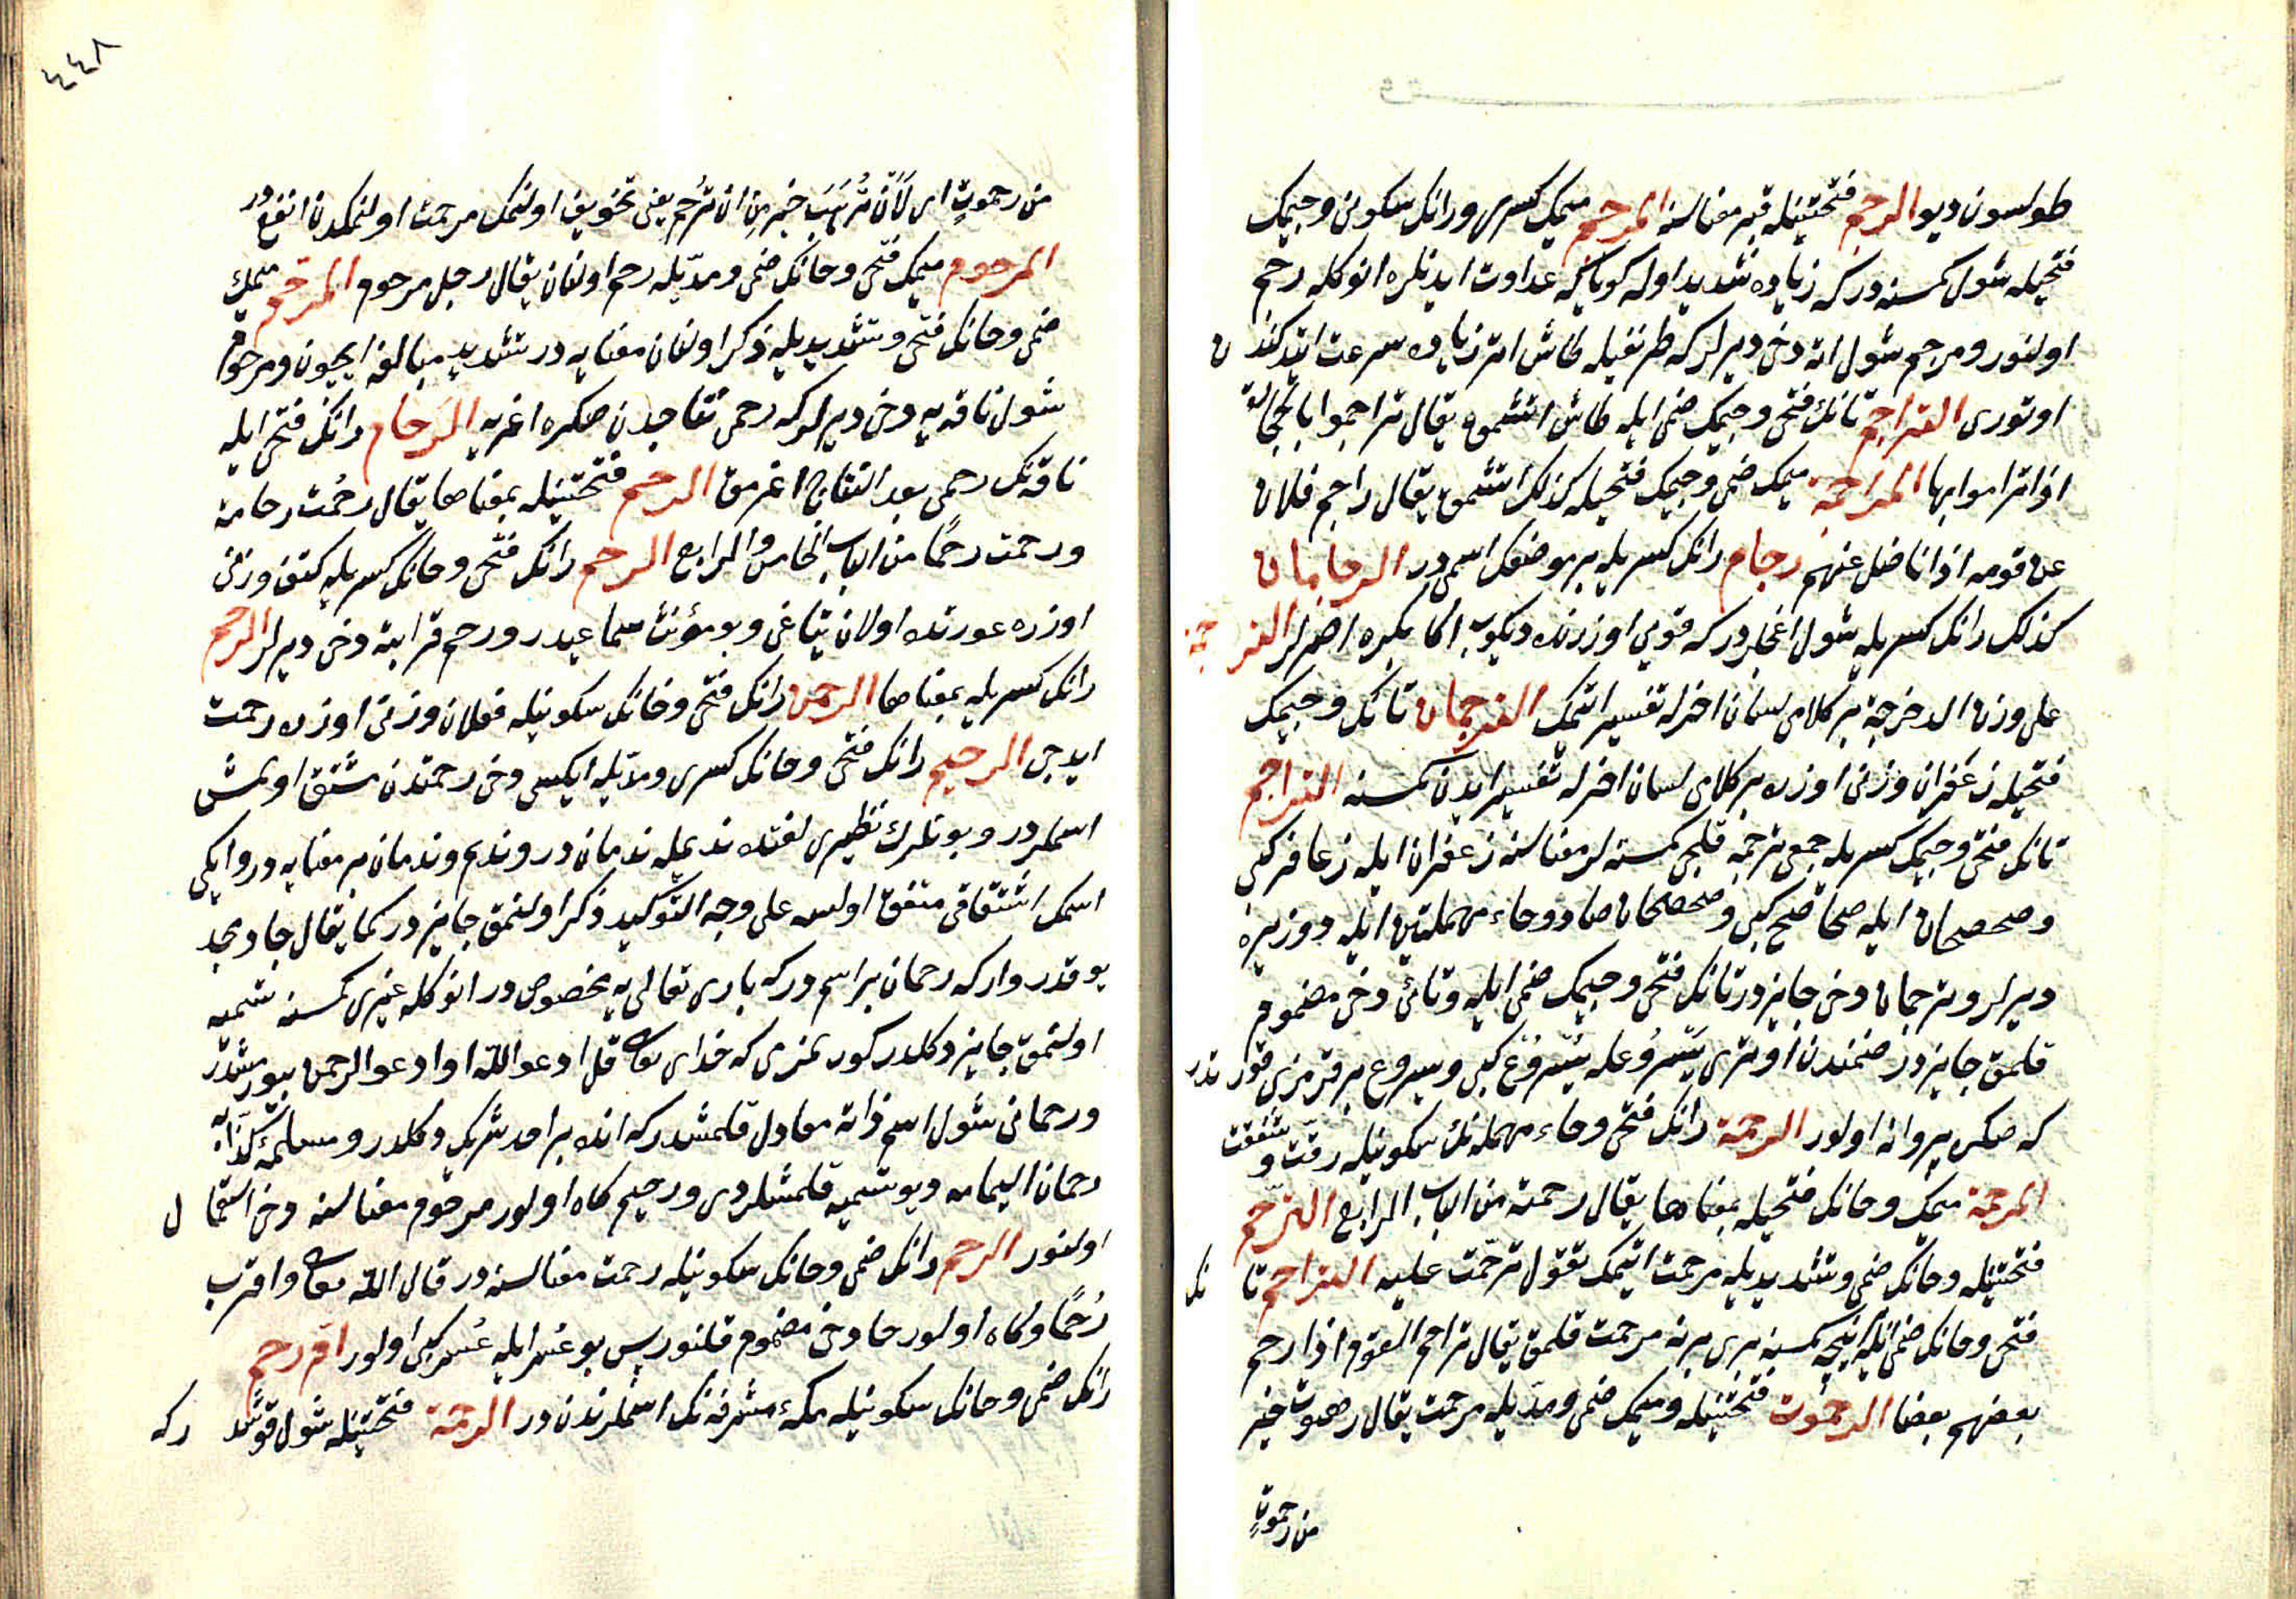 طولسون ديو الرجم فتحتينله قبر معناسنه المرجم ميمك كسرى ورانك سكونى وجيمك
فتحيله شول كمسنه دركه زياده شديد اوله كويا كه عداوت ايدنلره انوكله رجم
اولنور ومرجم شول اته دخى ديرلر كه طرنغيله طاش اتر زياده سرعت ايتدكندن
اوتورى التراجم تانك فتحى وجيمك ضمى ايله طاش اتشمق يقال تراجموا بالحجارة
اذا تراموا بها المراجمة ميمك ضمى وجيمك فتحيله كذلك اتشمق يقال راجم فلان
عن قومه اذا ناضل عنهم رجام رانك كسريله بر موضعك اسمى در الرجامان
كذلك رانك كسريله شول اغاجلر دركه قويى اوزرنده ديكوب اكا بكره اصرلر الترجمة
على وزن الدحرجة بر كلامى لسان اخرله تفسير اتمك الترجمان تانك وجيمك
فتحيله زعفران وزنى اوزره بر كلامى لسان اخرله تفسير ايدن كمسنه التراجم
تانك فتحى وجيمك كسريله جمعى ترجمه قلجى كمسنه لر معناسنه زعفران ايله زعافر كبى
وصحصحان ايله صحاصح كبى وصحصحان صاد وحاء مهملتين ايله دوز يره
ديرلر وترجمان دخى جايزدر تانك فتحى وجيمك ضمى ايله وتائى دخى مضموم
قلمق جايزدر ضمندن اوترى يسروعله يسروع كبى ويسروع بر قرمزى قورتدر
كه صكره پروانه اولور الرحمة رانك فتحى وحاء مهمله نك سكونيله رقت وشفقت
المرحمة ميمك وحانك فتحيله بمعناها يقال رحمته من الباب الرابع الترحم
فتحتينله وحانك ضمى وتشديديله مرحمت اتمك تقول ترحمت عليه التراحم تانك
فتحى وحانك ضمى ايله نيجه كمسنه برى برنه مرحمت قلمق يقال تراحم القوم اذا رحم
بعضهم بعضا الرحموت فتحتينله وميمك ضمى ومديله مرحمت يقال رهبوت خير
من رحموت
٤٤٨
من رحموت اى لان ترهب خير من ان ترحم يعنى تخويف اولنمك مرحمت اولنمكدن انفع در
المرحوم ميمك فتحى وحانك ضمى ومديله رحم اولنان يقال رجل مرحوم المرحم ميمك
ضمى وحانك فتحى وتشديديله ذكر اولنان معنايه در تشديد مبالغه ايچون ورحوم
شول ناقه يه دخى ديرلر كه رحمى نتاجدن صكره اغريه الرحام رانك فتحى ايله
ناقه نك رحمى بعد النتاج اغرمق الرحم فتحتينله بمعناها يقال رحمت رحامة
ورحمت رحما من الباب الخامس والرابع الرحم رانك فتحى وحانك كسريله كتف وزنى
اوزره عورتده اولان يتاغى وبو مؤنث سماعيدر ورحم قرابته دخى ديرلر الرحم
رانك كسريله بمعناها الرحمن رانك فتحى وحانك سكونيله فعلان وزنى اوزره رحمت
ايدجى الرحيم رانك فتحى وحانك كسرى ومديله ايكسى دخى رحمتدن مشتق اولمش
اسملردر وبونلرك نظيرى لغتده نديمله ندمان در ونديم وندمان بر معنايه در وايكى
اسمك اشتقاقى متفق اولسه على وجه التوكيد ذكر اولنمق جايزدر كما يقال جاد مجد
بو قدر وار كه رحمان بر اسم دركه بارى تعالى يه مخصوص در انوكله غيرى كمسنه تسميه
اولنمق جايز دكلدر كورمزمى كه خداى تعالى قل ادعوا الله او ادعوا الرحمن بيورمشدر
ورحمانى شول اسم ذاته معادل قلمشدر كه انده بر احد شريك دكلدر ومسيلمۀ كذابه
رحمان اليمامه ديو تسميه قلمشلردى ورحيم كاه اولور مرحوم معناسنه دخى استعمال
اولنور الرحم رانك ضمى وحانك سكونيله رحمت معناسنه در قال الله تعالى واقرب
رحما وكاه اولور حا دخى مضموم قلنور پس بو عسر ايله عسر كبى اولور ام رحم
رانك ضمى وحانك سكونيله مكۀ مشرفه نك اسملرندن در الرخمة فتحتينله شول قوشدر كه